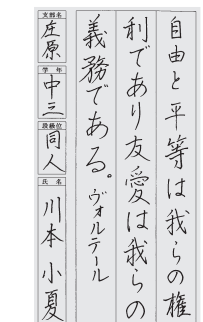 自由と平等は我らの権
利であり友愛は我らの
義務である。ヴォルテール
支部名 庄原
学年 中三
段級位 同人
氏名 川本小夏